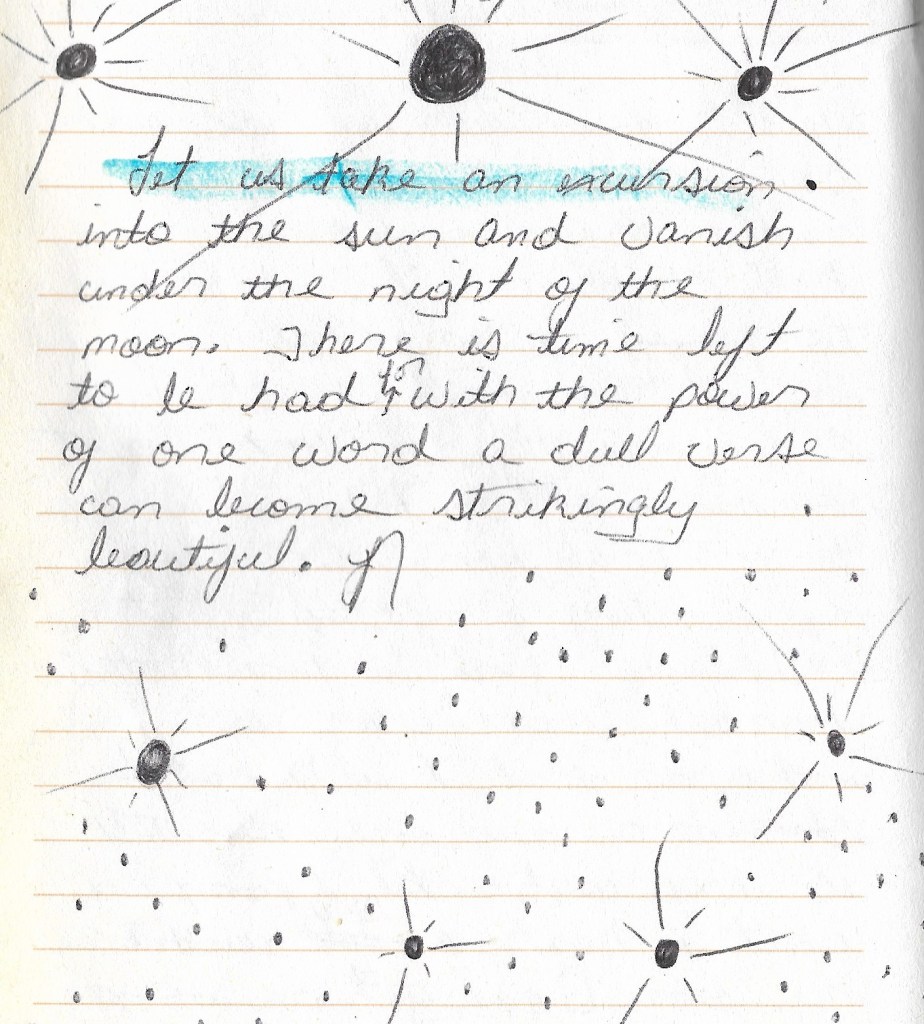 Let us take an excursion
into the sun and vanish
under the night of the
moon. There is time left
to be had for with the power
of one word a dull verse
can become strikingly
beautiful.